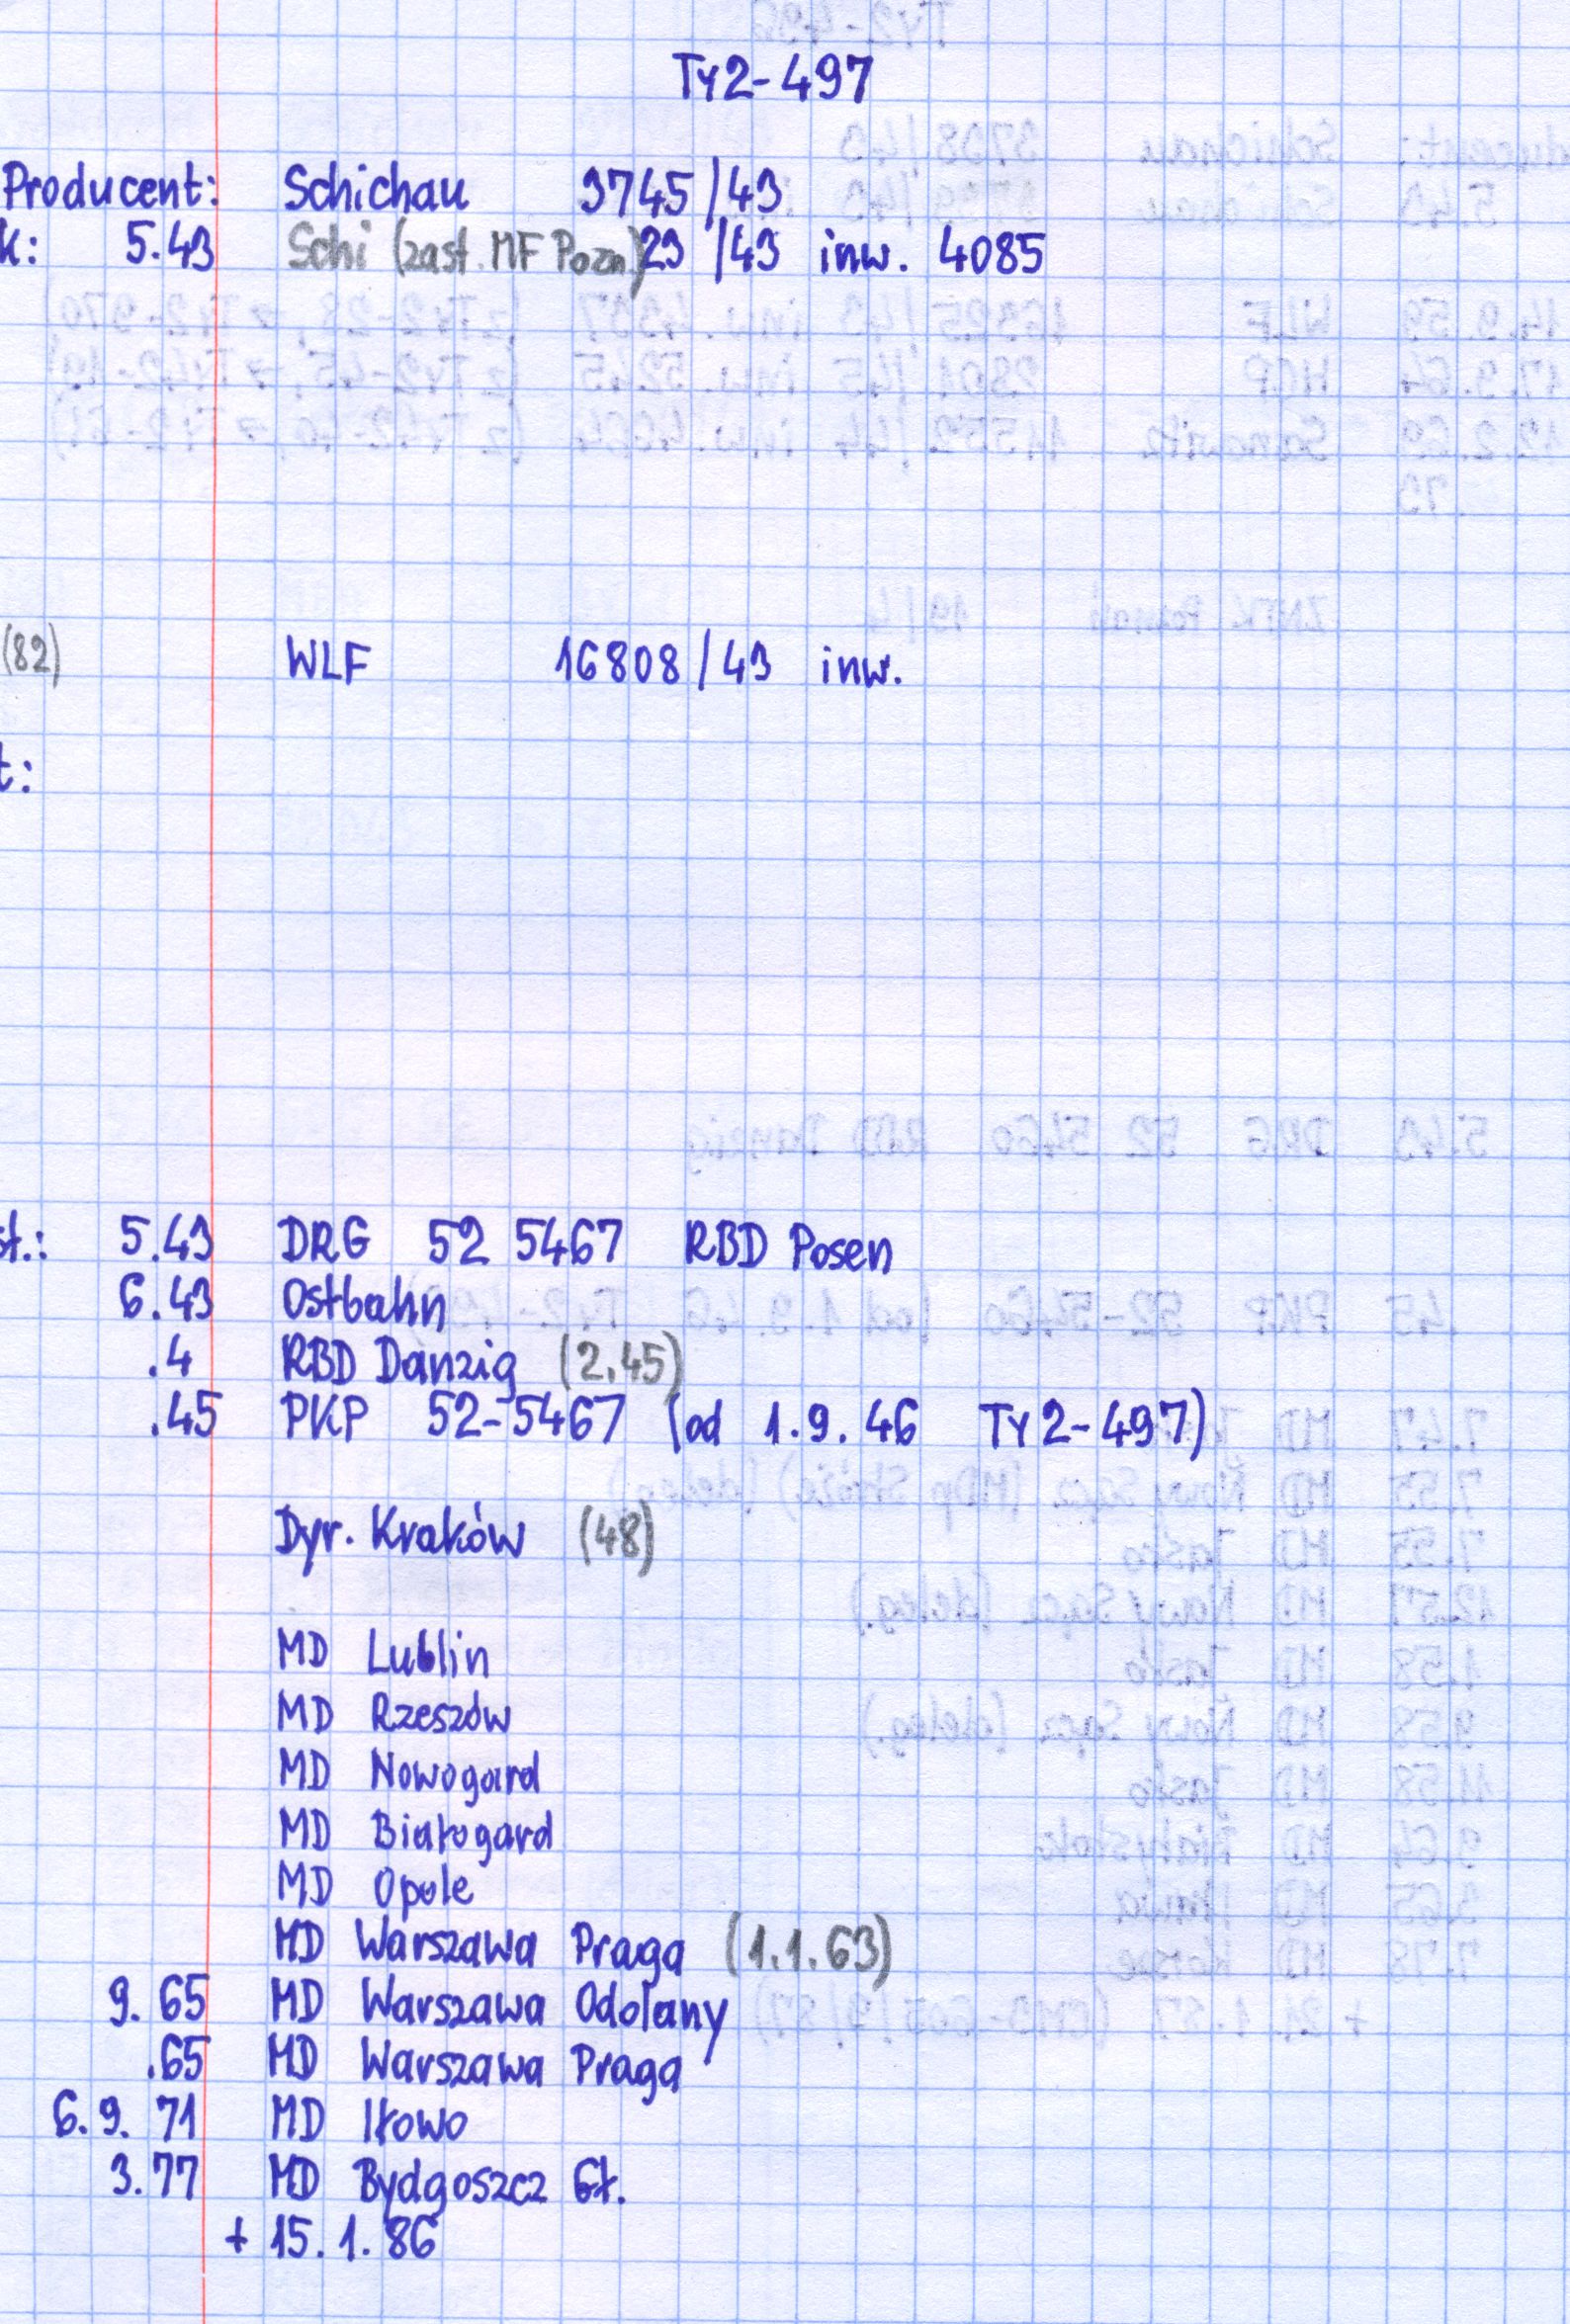 Ty2-497
Producent: Schichau 3745/43
k: 5.43 Schi (zast. MF Pozn.) 23 /43 inw. 4085
(82) WLF 16808/43 inw.
t:
st.: 5.43 DRG 52 5467 RBD Posen
6.43 Ostbahn
.4 RBD Danzig (2.45)
.45 PKP 52-5467 (od 1.9.46 Ty2-497)
Dyr. Kraków (48)
MD Lublin
MD Rzeszów
MD Nowogard
MD Białogard
MD Opole
MD Warszawa Praga (1.1.63)
9.65 MD Warszawa Odolany
.65 MD Warszawa Praga
6.9.71 MD Iłowo
3.77 MD Bydgoszcz Gł.
+ 15.1.86